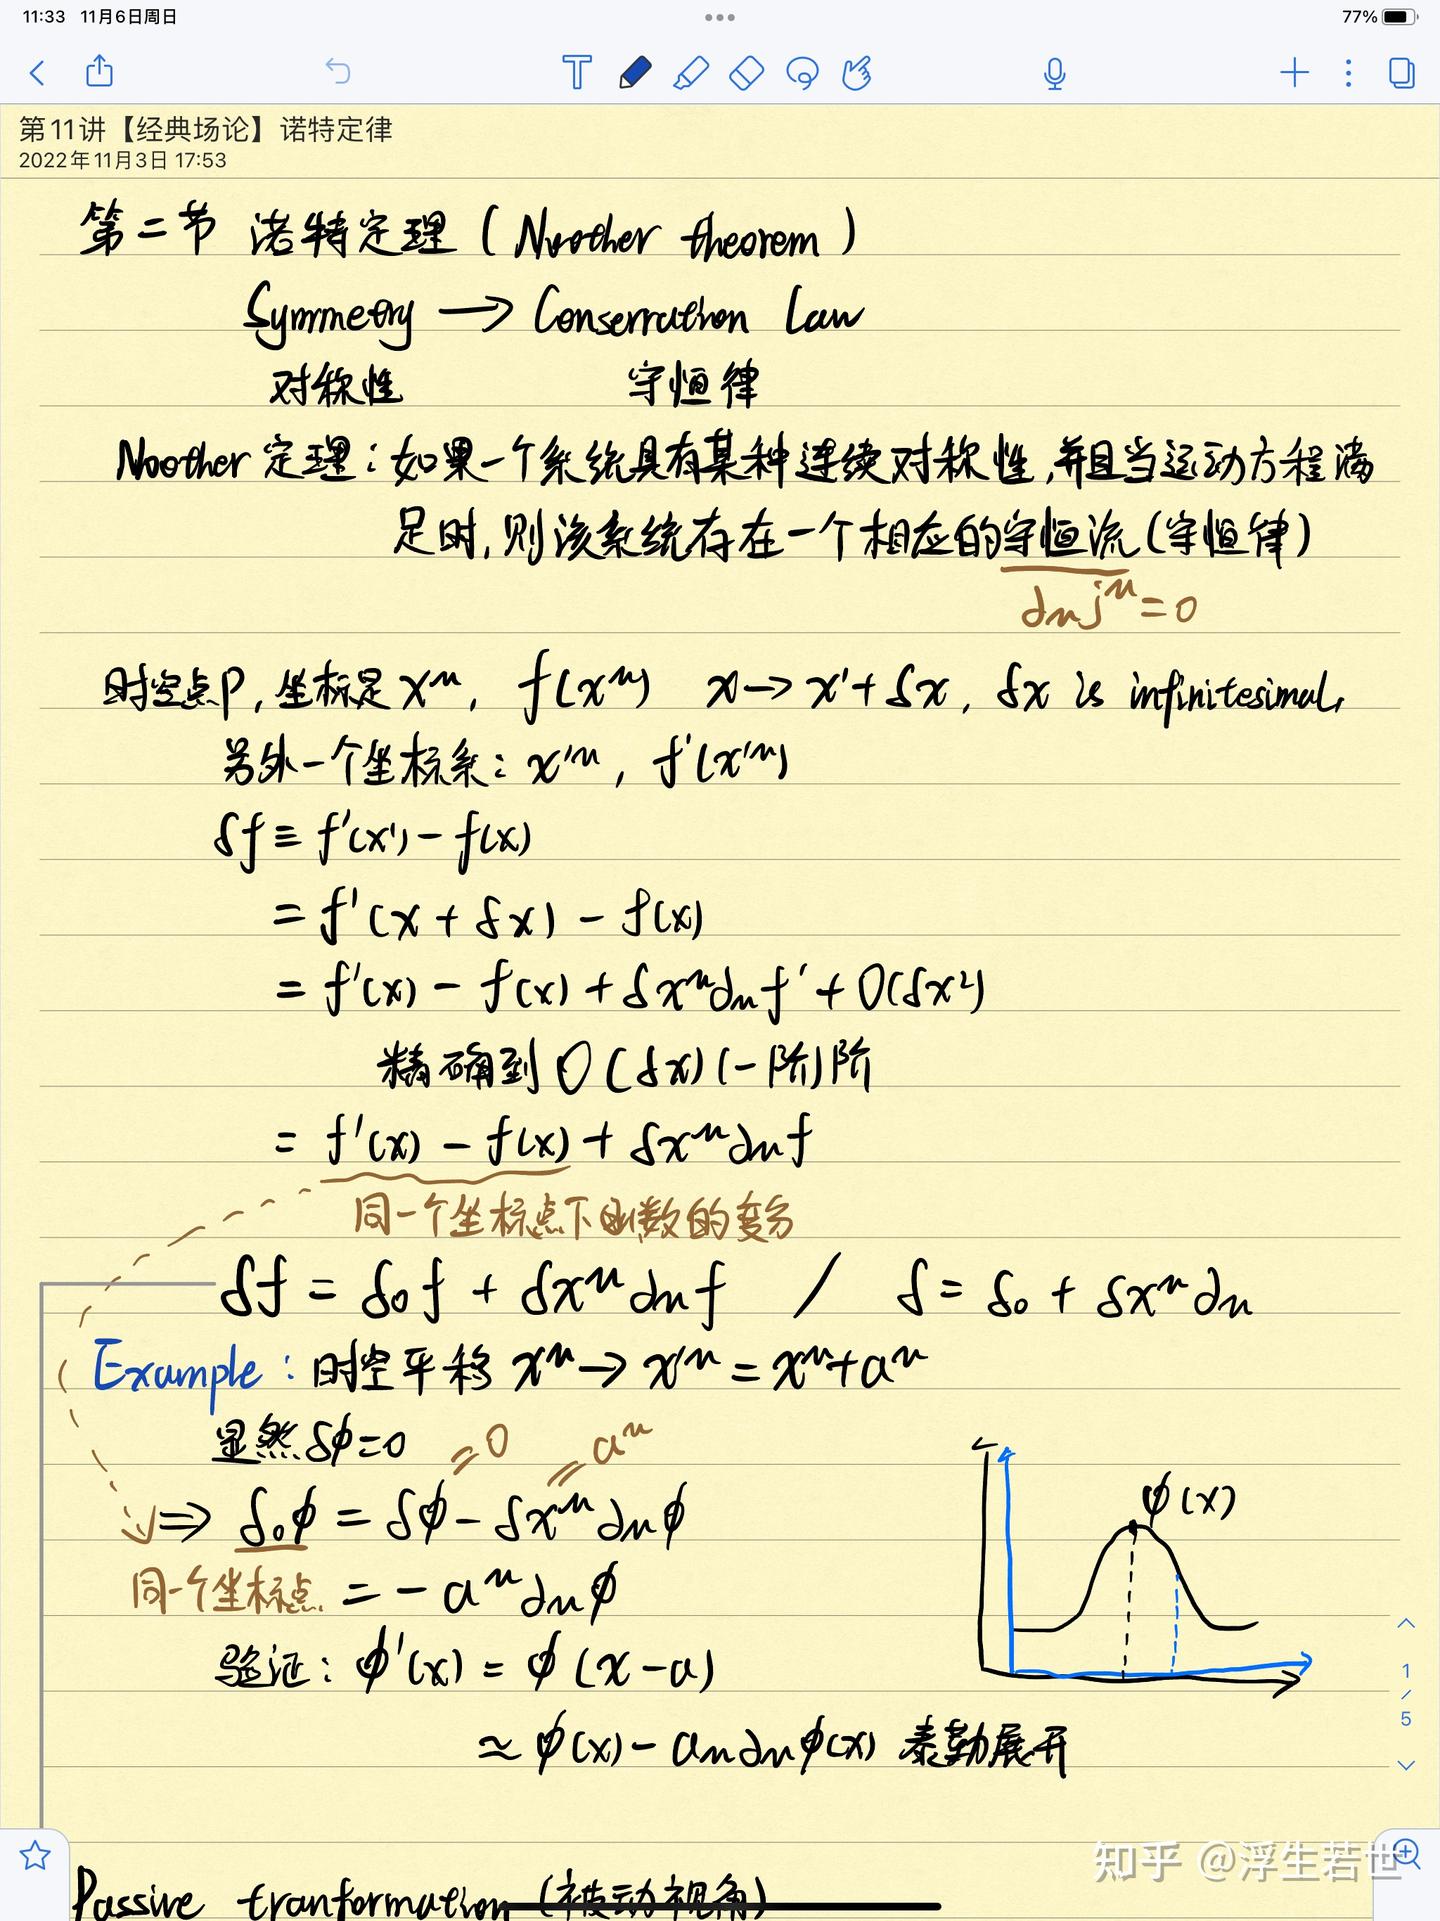 11:33 11月6日周日
77%
第11讲【经典场论】诺特定律
2022年11月3日 17:53
第二节 诺特定理 (Noother theorem)
Symmetry → Conservation Law
对称性 守恒律
Noother 定理: 如果一个系统具有某种连续对称性,并且当运动方程满
足时,则该系统存在一个相应的守恒流(守恒律)
∂μj^μ = 0
时空点P, 坐标是 x^μ, f(x^μ) x → x' + δx, δx is infinitesimal,
另外一个坐标系: x'^μ, f'(x'^μ)
δf ≡ f'(x') - f(x)
= f'(x + δx) - f(x)
= f'(x) - f(x) + δx^μ∂μf' + O(δx²)
精确到 O(δx)(一阶)阶
= f'(x) - f(x) + δx^μ∂μf
同一个坐标点下函数的变分
δf = δ₀f + δx^μ∂μf / δ = δ₀ + δx^μ∂μ
Example: 时空平移 x^μ → x'^μ = x^μ + a^μ
显然 δφ = 0 = 0 = a^μ
⇒ δ₀φ = δφ - δx^μ∂μφ
φ(x)
同一个坐标点 = - a^μ∂μφ
验证: φ'(x) = φ(x - a)
1
/
5
≈ φ(x) - aμ∂μφ(x) 泰勒展开
知乎 @浮生若世
Passive tranformation (被动视角)